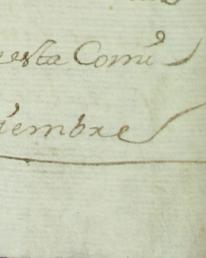 esta Comũ
iembre